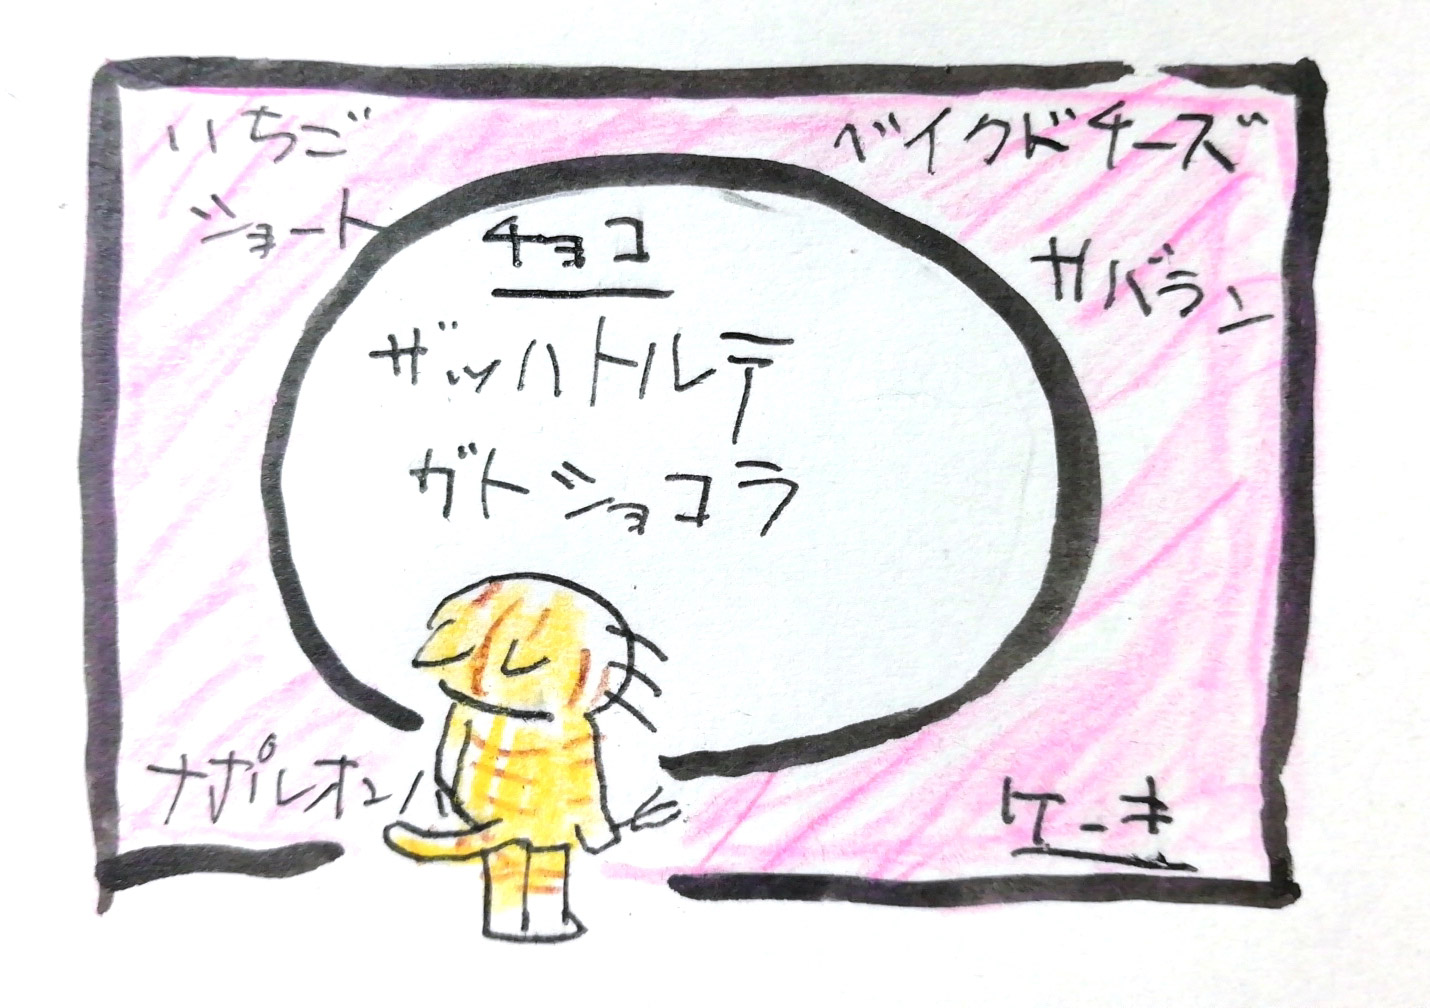 いちご
ショート
ベイクドチーズ
サバラン
チョコ
ザッハトルテ
ガトショコラ
ナポレオンパ
ケーキ